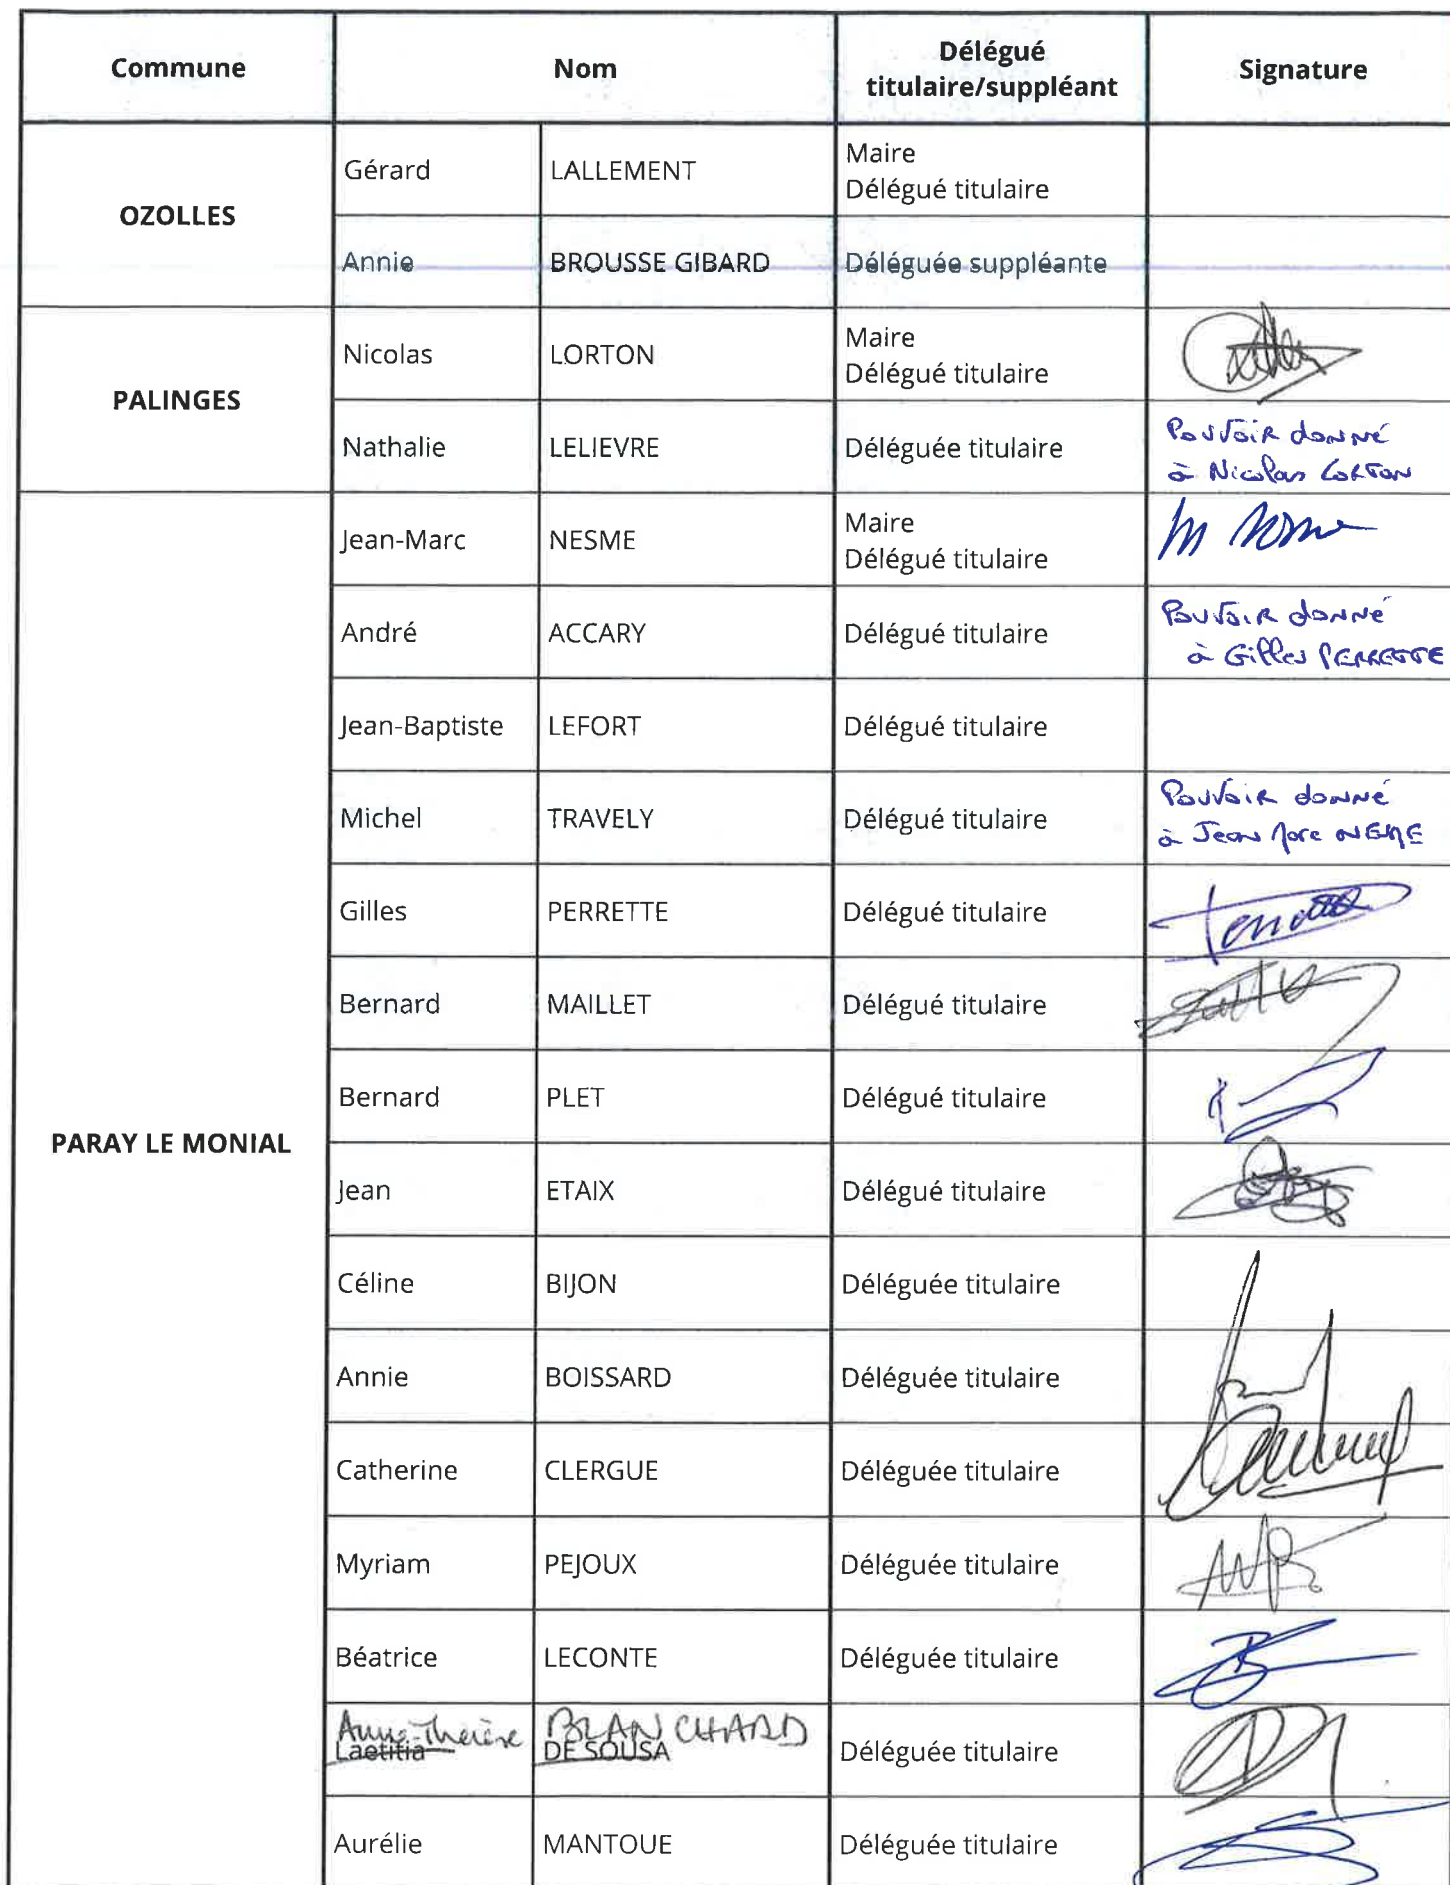 Commune Nom Délégué titulaire/suppléant Signature
OZOLLES
Gérard LALLEMENT Maire
Délégué titulaire
Annie BROUSSE GIBARD Déléguée suppléante
PALINGES
Nicolas LORTON Maire
Délégué titulaire
Nathalie LELIEVRE Déléguée titulaire Pouvoir donné
à Nicolas LORTON
PARAY LE MONIAL
Jean-Marc NESME Maire
Délégué titulaire
André ACCARY Délégué titulaire Pouvoir donné
à Gilles PERRETTE
Jean-Baptiste LEFORT Délégué titulaire
Michel TRAVELY Délégué titulaire Pouvoir donné
à Jean Marc NESME
Gilles PERRETTE Délégué titulaire
Bernard MAILLET Délégué titulaire
Bernard PLET Délégué titulaire
Jean ETAIX Délégué titulaire
Céline BIJON Déléguée titulaire
Annie BOISSARD Déléguée titulaire
Catherine CLERGUE Déléguée titulaire
Myriam PEJOUX Déléguée titulaire
Béatrice LECONTE Déléguée titulaire
Anne-Thérèse BLANCHARD
Laetitia DE SOUSA Déléguée titulaire
Aurélie MANTOUE Déléguée titulaire